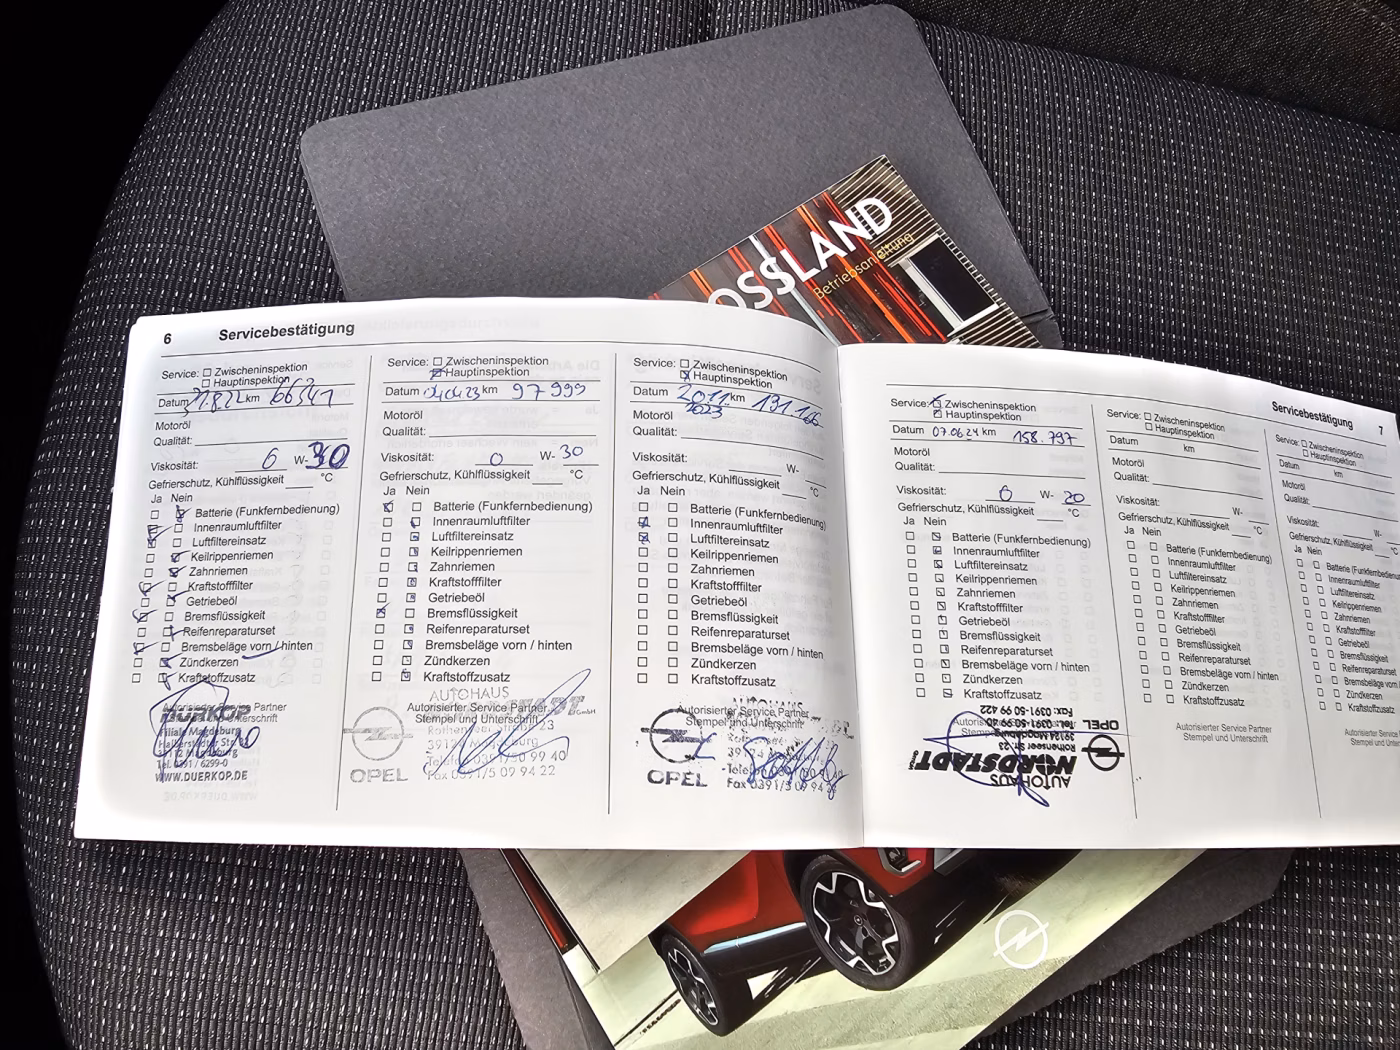 OSSLAND
Betriebsanleitung
6 Servicebestätigung
Service: Zwischeninspektion
Hauptinspektion
Datum 31.8.22 km 66341
Motoröl
Qualität:
Viskosität: 0 W- 30
Gefrierschutz, Kühlflüssigkeit °C
Ja Nein
Batterie (Funkfernbedienung)
Innenraumluftfilter
Luftfiltereinsatz
Keilrippenriemen
Zahnriemen
Kraftstofffilter
Getriebeöl
Bremsflüssigkeit
Reifenreparaturset
Bremsbeläge vorn / hinten
Zündkerzen
Kraftstoffzusatz
Autorisierter Service Partner
DÜRKOP
Filiale Magdeburg
Tel. 0391 / 6299-0
WWW.DUERKOP.DE
Service: Zwischeninspektion
Hauptinspektion
Datum 04.04.23 km 97999
Motoröl
Qualität:
Viskosität: 0 W- 30
Gefrierschutz, Kühlflüssigkeit °C
Ja Nein
Batterie (Funkfernbedienung)
Innenraumluftfilter
Luftfiltereinsatz
Keilrippenriemen
Zahnriemen
Kraftstofffilter
Getriebeöl
Bremsflüssigkeit
Reifenreparaturset
Bremsbeläge vorn / hinten
Zündkerzen
Kraftstoffzusatz
AUTOHAUS
Autorisierter Service Partner
Stempel und Unterschrift
Rothenseer Str. 23
Telefon 0391/50 99 40
Fax 0391/5 09 94 22
OPEL
Service: Zwischeninspektion
Hauptinspektion
Datum 20.11. km 131166
2023
Motoröl
Qualität:
Viskosität: W-
Gefrierschutz, Kühlflüssigkeit °C
Ja Nein
Batterie (Funkfernbedienung)
Innenraumluftfilter
Luftfiltereinsatz
Keilrippenriemen
Zahnriemen
Kraftstofffilter
Getriebeöl
Bremsflüssigkeit
Reifenreparaturset
Bremsbeläge vorn / hinten
Zündkerzen
Kraftstoffzusatz
Autorisierter Service Partner
Stempel und Unterschrift
Fax 0391/5 09 94 22
OPEL
Servicebestätigung 7
Service: Zwischeninspektion
Hauptinspektion
Datum 07.06.24 km 158.797
Motoröl
Qualität:
Viskosität: 0 W- 20
Gefrierschutz, Kühlflüssigkeit °C
Ja Nein
Batterie (Funkfernbedienung)
Innenraumluftfilter
Luftfiltereinsatz
Keilrippenriemen
Zahnriemen
Kraftstofffilter
Getriebeöl
Bremsflüssigkeit
Reifenreparaturset
Bremsbeläge vorn / hinten
Zündkerzen
Kraftstoffzusatz
AUTOHAUS
NORDSTADT
Rothenseer Str. 23
39124 Magdeburg
Tel. 0391-50 99 40
Fax 0391-50 99 422
OPEL
Service: Zwischeninspektion
Hauptinspektion
Datum km
Motoröl
Qualität:
Viskosität: W-
Gefrierschutz, Kühlflüssigkeit °C
Ja Nein
Batterie (Funkfernbedienung)
Innenraumluftfilter
Luftfiltereinsatz
Keilrippenriemen
Zahnriemen
Kraftstofffilter
Getriebeöl
Bremsflüssigkeit
Reifenreparaturset
Bremsbeläge vorn / hinten
Zündkerzen
Kraftstoffzusatz
Autorisierter Service Partner
Stempel und Unterschrift
Service: Zwischeninspektion
Hauptinspektion
Datum km
Motoröl
Qualität:
Viskosität: W-
Gefrierschutz, Kühlflüssigkeit
Ja Nein
Batterie (Funkfernbedienung
Innenraumluftfilter
Luftfiltereinsatz
Keilrippenriemen
Zahnriemen
Kraftstofffilter
Getriebeöl
Bremsflüssigkeit
Reifenreparaturset
Bremsbeläge vorn
Zündkerzen
Kraftstoffzusatz
Autorisierter Service
Stempel und Unter